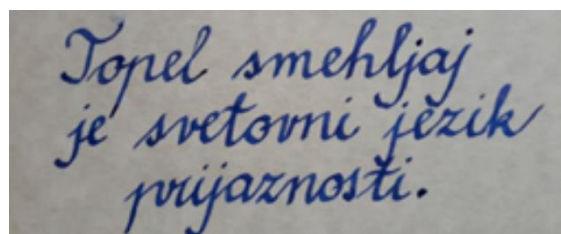 Topel smehljaj
je svetovni jezik
prijaznosti.